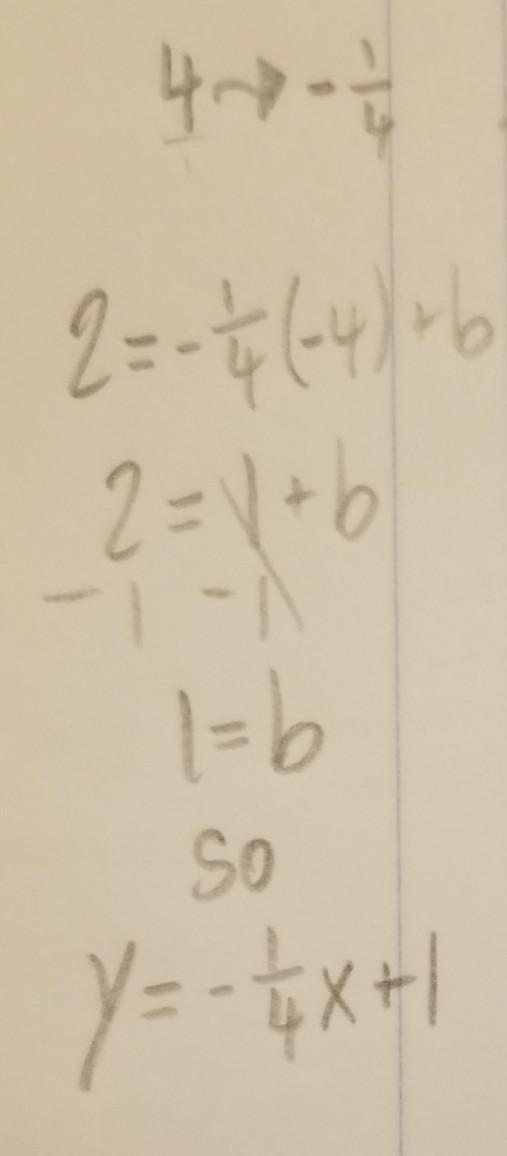 4/1 → -1/4
2 = -1/4(-4) + b
2 = 1 + b
-1 -1
1 = b
so
y = -1/4x + 1